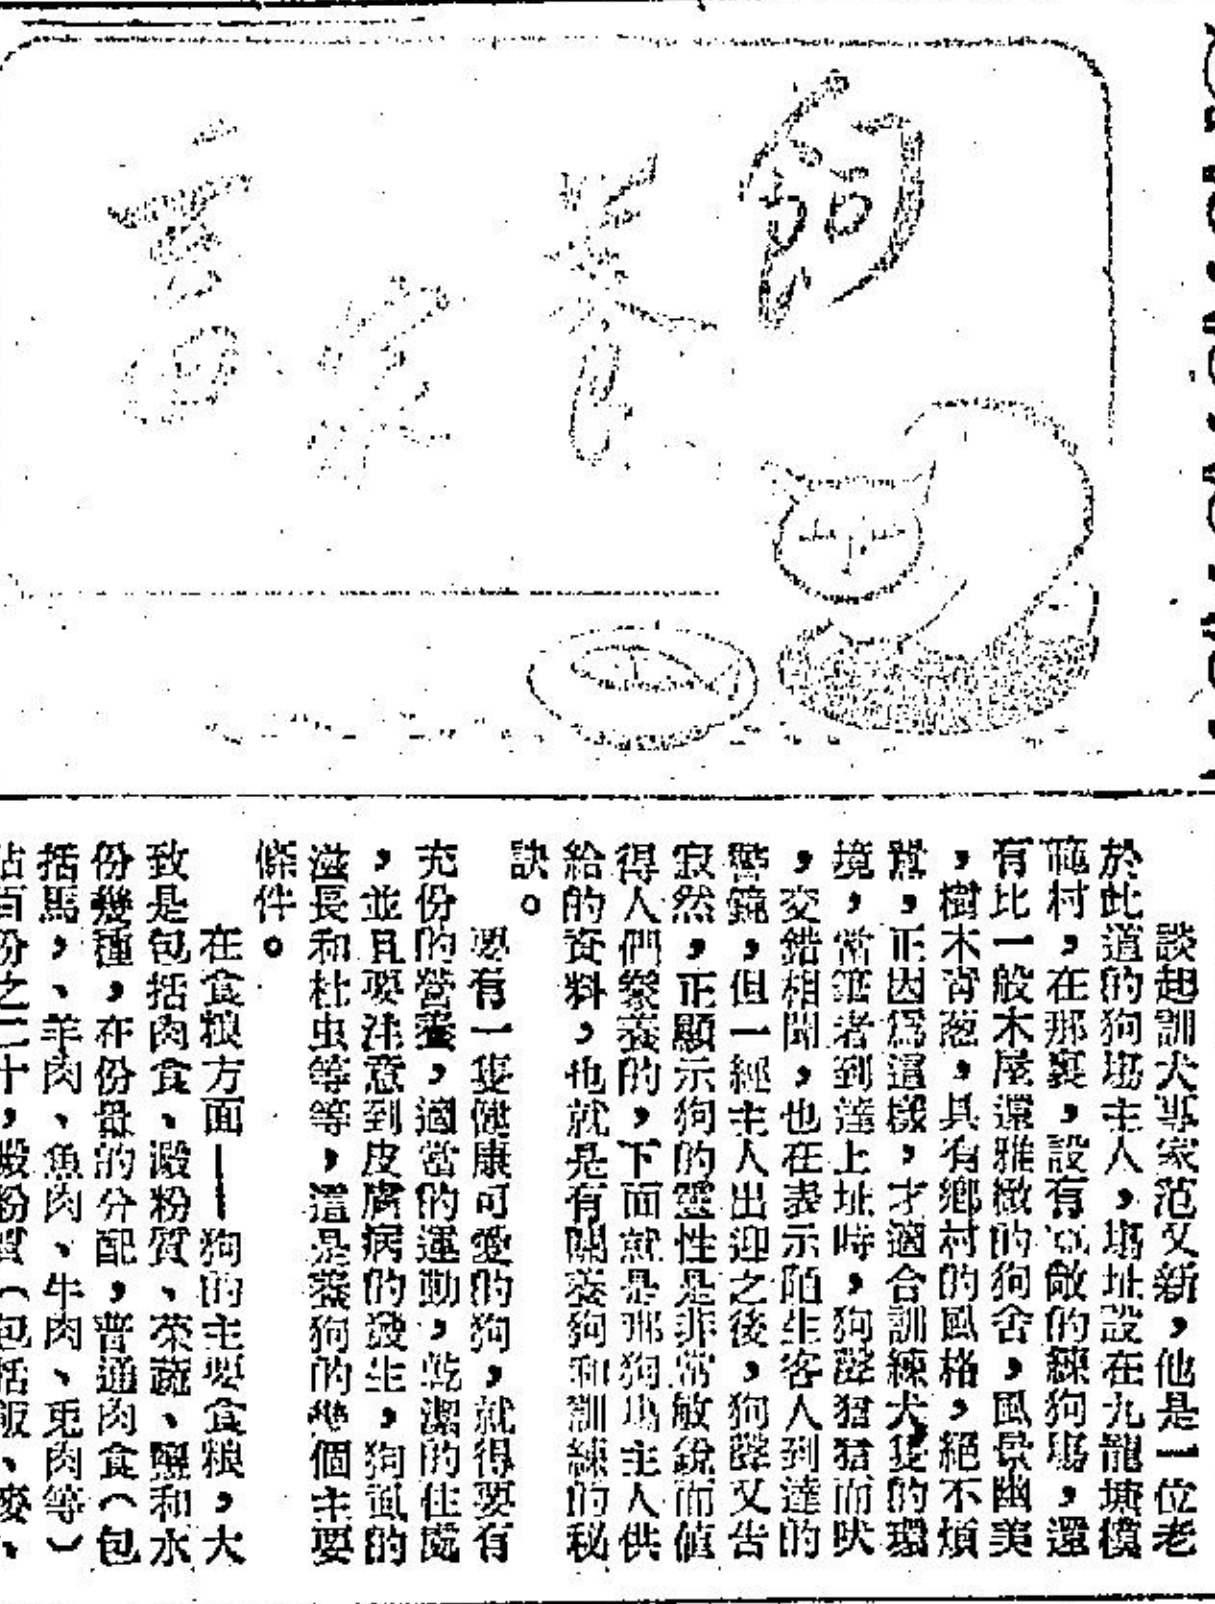 談起訓犬專家范文新，他是一位老
於此道的狗塲主人，塲址設在九龍塘模
範村，在那裏，設有寬敞的練狗塲，還
有比一般木屋還雅緻的狗舍，風景幽美
，樹木青葱，具有鄉村的風格，絕不煩
囂，正因爲這樣，才適合訓練犬隻的環
境，當筆者到達上址時，狗聲狺狺而吠
，交錯相聞，也在表示陌生客人到達的
警鐘，但一經主人出迎之後，狗聲又告
寂然，正顯示狗的靈性是非常敏銳而值
得人們豢養的，下面就是那狗塲主人供
給的資料，也就是有關養狗和訓練的秘
訣。
要有一隻健康可愛的狗，就得要有
充份的營養，適當的運動，乾潔的住處
，並且要注意到皮膚病的發生，狗虱的
滋長和杜虫等等，這是養狗的幾個主要
條件。
在食粮方面——狗的主要食粮，大
致是包括肉食、澱粉質、菜蔬、鹽和水
份幾種，在份量的分配，普通肉食（包
括馬，、羊肉、魚肉、牛肉、兎肉等）
佔百份之二十，澱粉質（包括飯、麥、